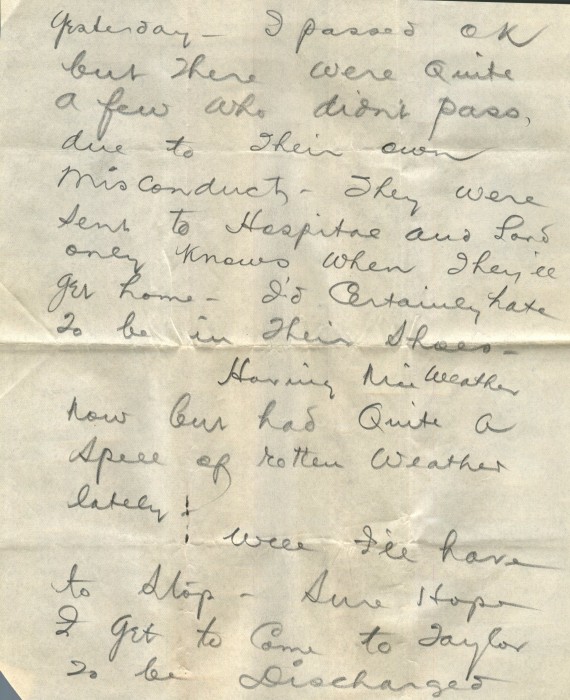 Yesterday - I passed OK
but There were Quite
a few who didn't pass,
due to Their own
Misconduct - They were
Sent to Hospital and Lord
only Knows When They'll
get home - I'd Certainly hate
To be in Their Shoes -
Having Nice Weather
Now but had Quite a
Spell of rotten Weather
lately!
Well I'll have
to Stop - Sure Hope
I Get to Come to Taylor
To be Discharged